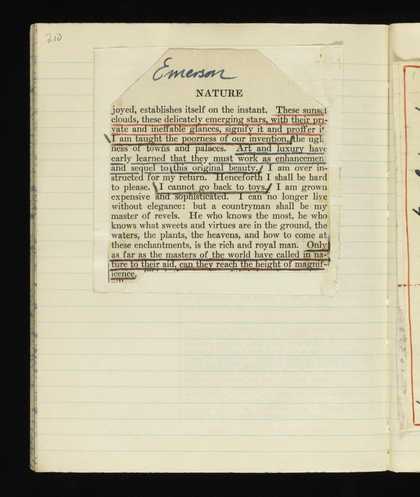 210
Emerson
NATURE
joyed, establishes itself on the instant. These sunset
clouds, these delicately emerging stars, with their pri-
vate and ineffable glances, signify it and proffer it
I am taught the poorness of our invention, the ugli
ness of towns and palaces. Art and luxury have
early learned that they must work as enhancemen
and sequel to this original beauty. I am over in-
structed for my return. Henceforth I shall be hard
to please. I cannot go back to toys. I am grown
expensive and sophisticated. I can no longer live
without elegance: but a countryman shall be my
master of revels. He who knows the most, he who
knows what sweets and virtues are in the ground, the
waters, the plants, the heavens, and how to come at
these enchantments, is the rich and royal man. Only
as far as the masters of the world have called in na-
ture to their aid, can they reach the height of magnif-
icence.